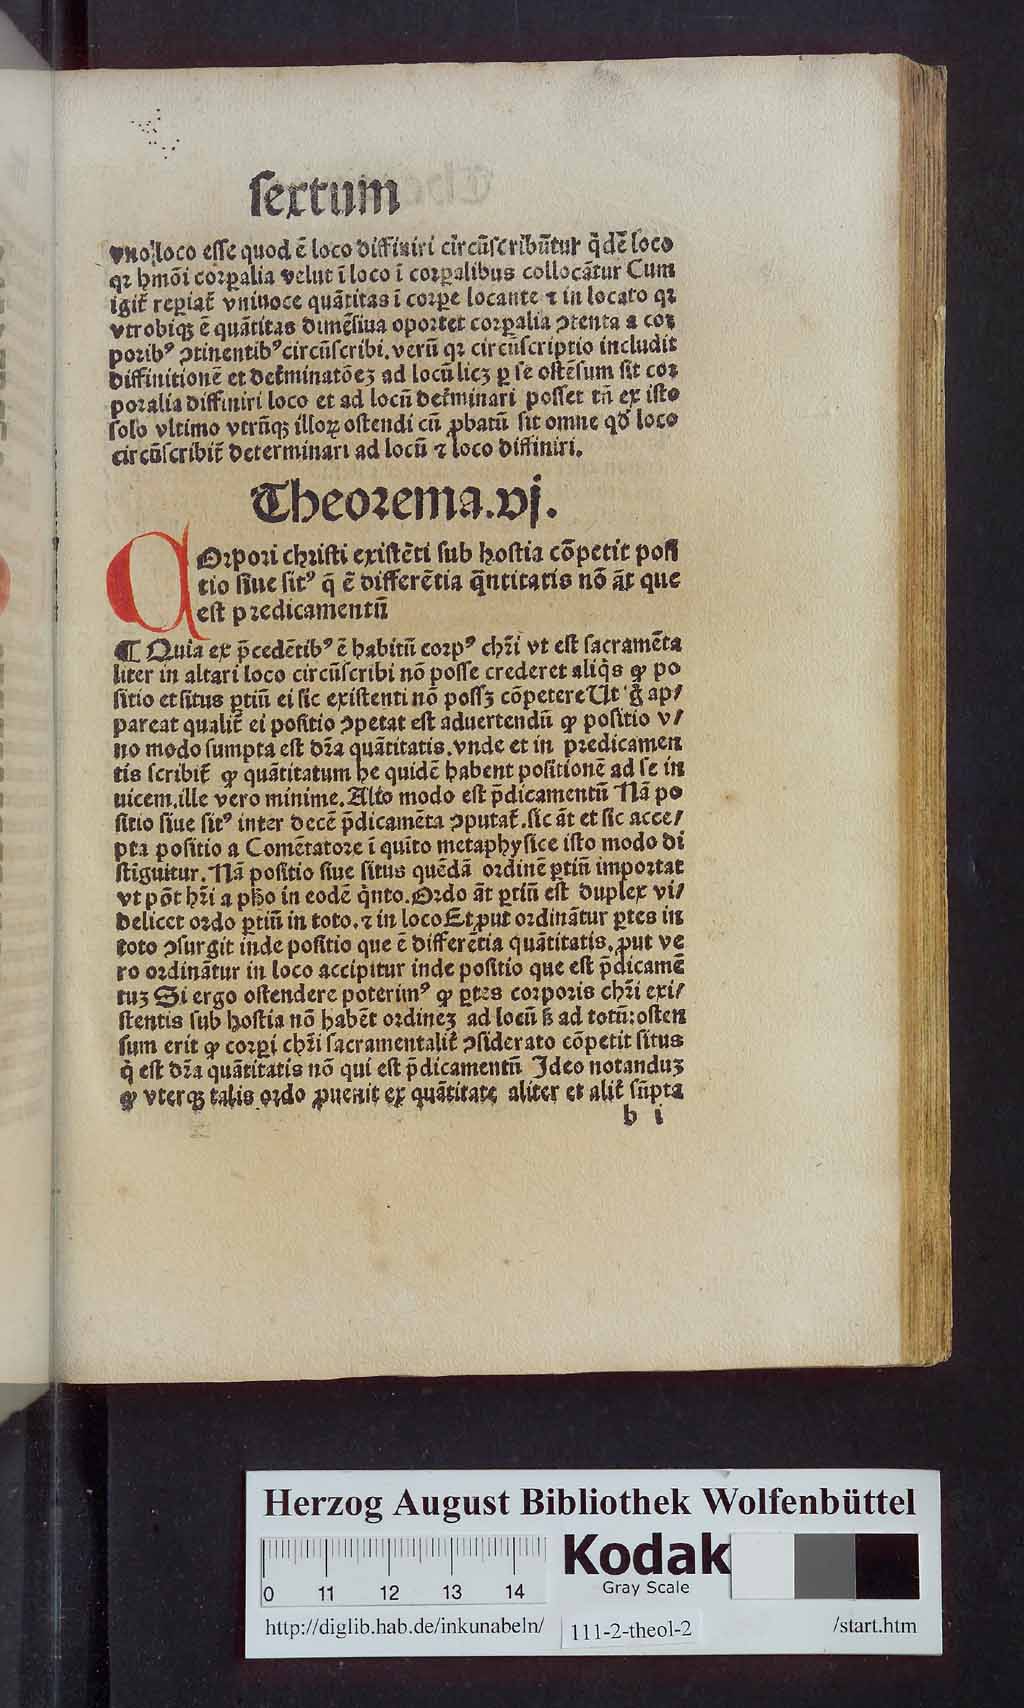 sextum
vno loco esse quod ē loco diffiniri circūscribūtur q̄dē loco
qꝛ hmōi corꝑalia velut ī loco ī corꝑalibus collocātur Cum
igit̄ reꝑiat̄ vniuoce quātitas ī corꝑe locante ⁊ in locato qꝛ
vtrobiqꝫ ē quātitas dimēsiua oportet corꝑalia ꝯtenta a cor
poribꝰ ꝯtinentibꝰ circūscribi. verū qꝛ circūscriptio includit
diffinitionē et det̄minatōeꝫ ad locū licꝫ ꝑ se ostēsum sit cor
poralia diffiniri loco et ad locū det̄minari posset tn̄ ex isto
solo vltimo vtrūqꝫ illoꝝ ostendi cū ꝓbatū sit omne qd̄ loco
circūscribit̄ determinari ad locū ⁊ loco diffiniri.
Theorema.vj.
COrpori christi existēti sub hostia cōpetit posi
tio siue sitꝰ q̄ ē differētia q̄ntitatis nō āt que
est predicamentū
¶ Quia ex p̄cedētibꝰ ē habitū corpꝰ chr̄i vt est sacramēta
liter in altari loco circūscribi nō posse crederet aliq̄s ꝙ po
sitio et situs ꝑtiū ei sic existenti nō possꝫ cōpetere Ut ḡ ap/
pareat qualit̄ ei positio ꝯpetat est aduertendū ꝙ positio v/
no modo sumpta est dr̄a quātitatis. vnde et in predicamen
tis scribit̄ ꝙ quātitatum he quidē habent positionē ad se in
uicem. ille vero minime. Alio modo est p̄dicamentū Nā po
sitio siue sitꝰ inter decē p̄dicamēta ꝯputat̄. sic āt et sic acce/
pta positio a Comētatore ī quīto metaphysice isto modo di
stīguitur. Nā positio siue situs quēdā ordinē ꝑtiū importat
vt pōt hr̄i a pħo in eodē q̄nto. Ordo āt ꝑtiū est duplex vi/
delicet ordo ꝑtiū in toto. ⁊ in loco Et ꝓut ordinātur ꝑtes in
toto ꝯsurgit inde positio que ē differētia quātitatis. ꝓut ve
ro ordinātur in loco accipitur inde positio que est p̄dicamē
tuꝫ Si ergo ostendere poterimꝰ ꝙ ꝑtes corporis chr̄i exi/
stentis sub hostia nō habēt ordineꝫ ad locū ẜ ad totū: osten
sum erit ꝙ corꝑi chr̄i sacramentalit̄ ꝯsiderato cōpetit situs
q̄ est dr̄a quātitatis nō qui est p̄dicamentū Ideo notanduꝫ
ꝙ vterqꝫ talis ordo ꝓuenit ex quātitate aliter et alit̄ sūpta
b i
Herzog August Bibliothek Wolfenbüttel
0 11 12 13 14
Kodak
Gray Scale
http://diglib.hab.de/inkunabeln/ 111-2-theol-2 /start.htm